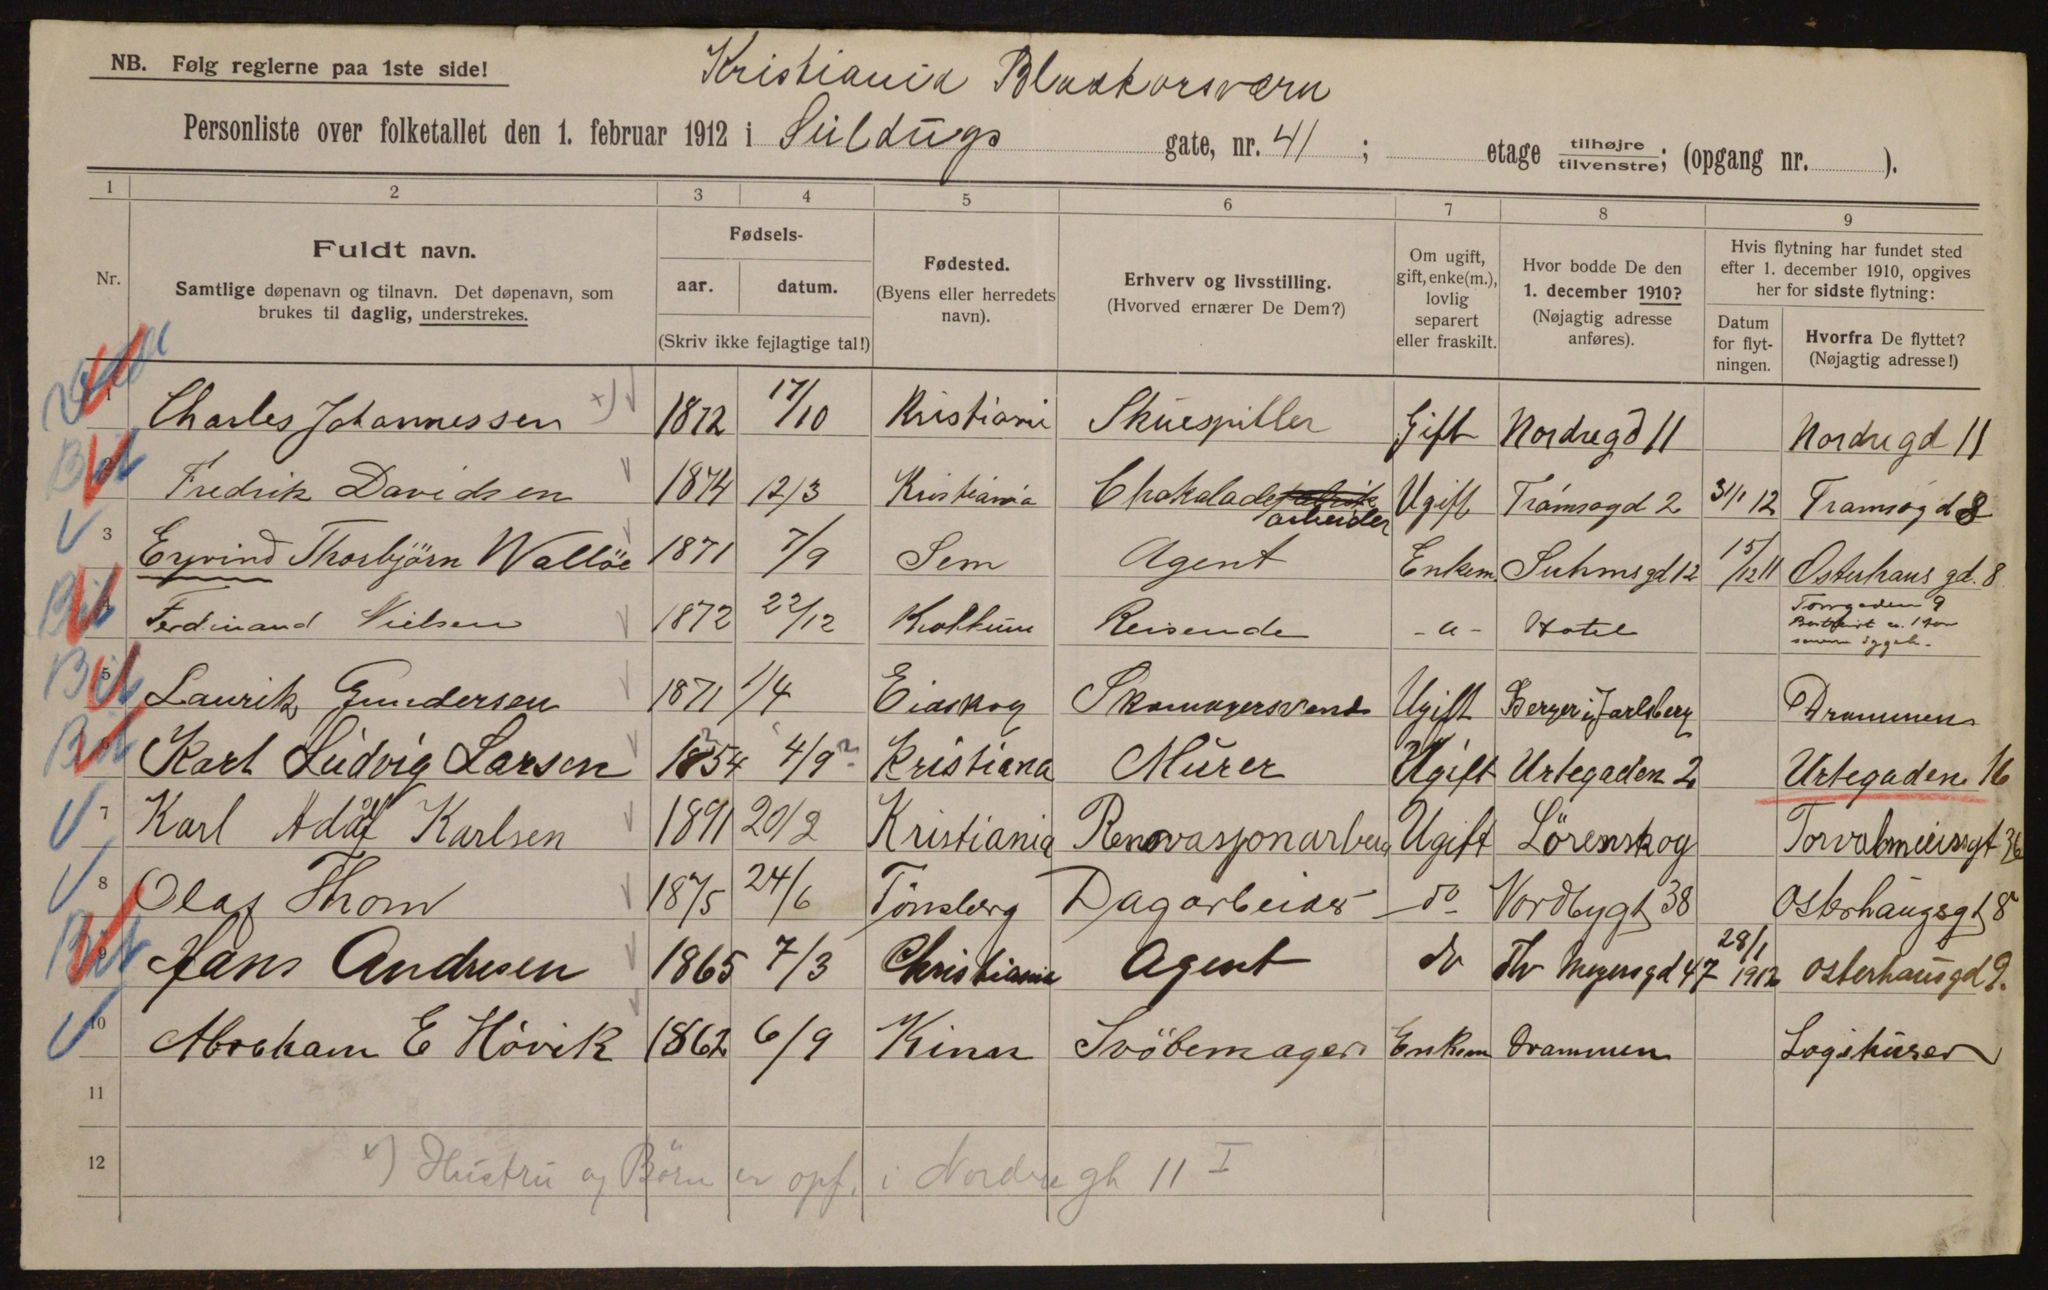 NB. Følg reglerne paa 1ste side!
Kristiania Blaakorsværn
Personliste over folketallet den 1. februar 1912 i gate, nr. 41; etage tilhøjre tilvenstre; (opgang nr. ).
1 2 3 4 5 6 7 8 9
Nr.
Fuldt navn.
Samtlige døpenavn og tilnavn. Det døpenavn, som
brukes til daglig, understrekes.
Fødsels-
aar. datum.
(Skriv ikke fejlagtige tal!)
Fødested.
(Byens eller herredets
navn).
Erhverv og livsstilling.
(Hvorved ernærer De Dem?)
Om ugift,
gift, enke(m.),
lovlig
separert
eller fraskilt.
Hvor bodde De den
1. december 1910?
(Nøjagtig adresse
anføres).
Hvis flytning har fundet sted
efter 1. december 1910, opgives
her for sidste flytning:
Datum
for flyt-
ningen.
Hvorfra De flyttet?
(Nøjagtig adresse!)
1 Charles Johannessen x) 1872 17/10 Kristiania Skuespiller Gift Nordregd 11 Nordregd 11
Bit 2 Fredrik Davidsen 1874 12/3 Kristiania Chokoladefabrik arbeider Ugift Tromsogd 2 31/1 12 Tromsogd 8
3 Eyvind Thorbjörn Wallöe 1871 7/9 Sem Agent Enkem Suhmsgd 12 15/12 11 Osterhausgd. 8
Bit 4 Ferdinand Nielsen 1872 22/12 Reisende -"- Hotel Torvgaden 9
Bit 5 Laurik Gundersen 1871 1/4 Eidskog Skomagersvend Ugift Berger i Jarlsberg Drammen
Bit 6 Karl Ludvig Larsen 1854 4/9 ? Kristiana Mürer Ugift Urtegaden 2 Urtegaden 16
7 Karl Adolf Karlsen 1891 20/2 Kristiania Renovasjonarbeid Ugift Lörenskog Torvalmeiersgt 36
8 Olaf Thom 1875 24/6 Tönsberg Dagarbeider do Nordbygt 38 Osterhausgt 8
Bit 9 Hans Andresen 1865 7/3 Christiania Agent do Th Meyersgd 47 28/1 1912 Osterhausgd 9.
10 Abraham E Hövik 1862 6/9 Kinn Svöbemager Enkem Drammen Logihuser
11
12
x) Hustru og Börn er opf. i Nordregt 11 I